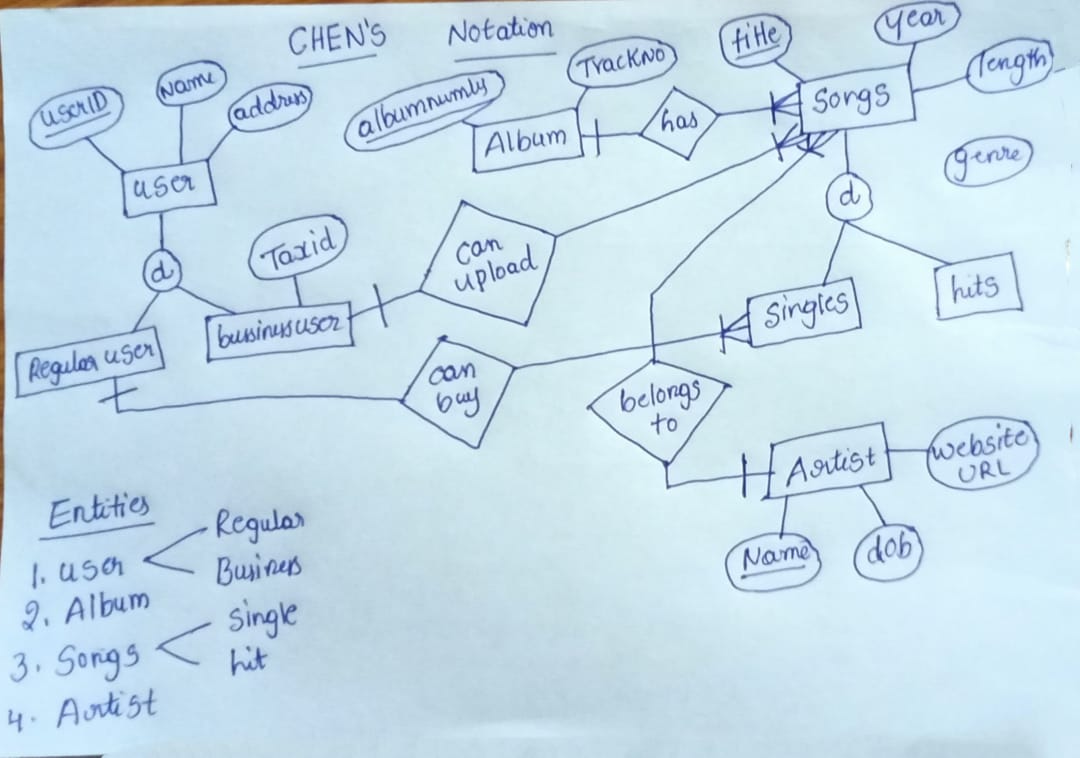 CHEN'S Notation
title
year
TrackNO
length
Name
userID
address
albumnumly
Songs
has
Album
genre
user
d
d
Taxid
can
upload
hits
Singles
bussinesuser
Regular user
can
buy
belongs
to
Artist
website
URL
Name
dob
Entities
Regular
1. user
Business
2. Album
Single
3. Songs
hit
4. Artist